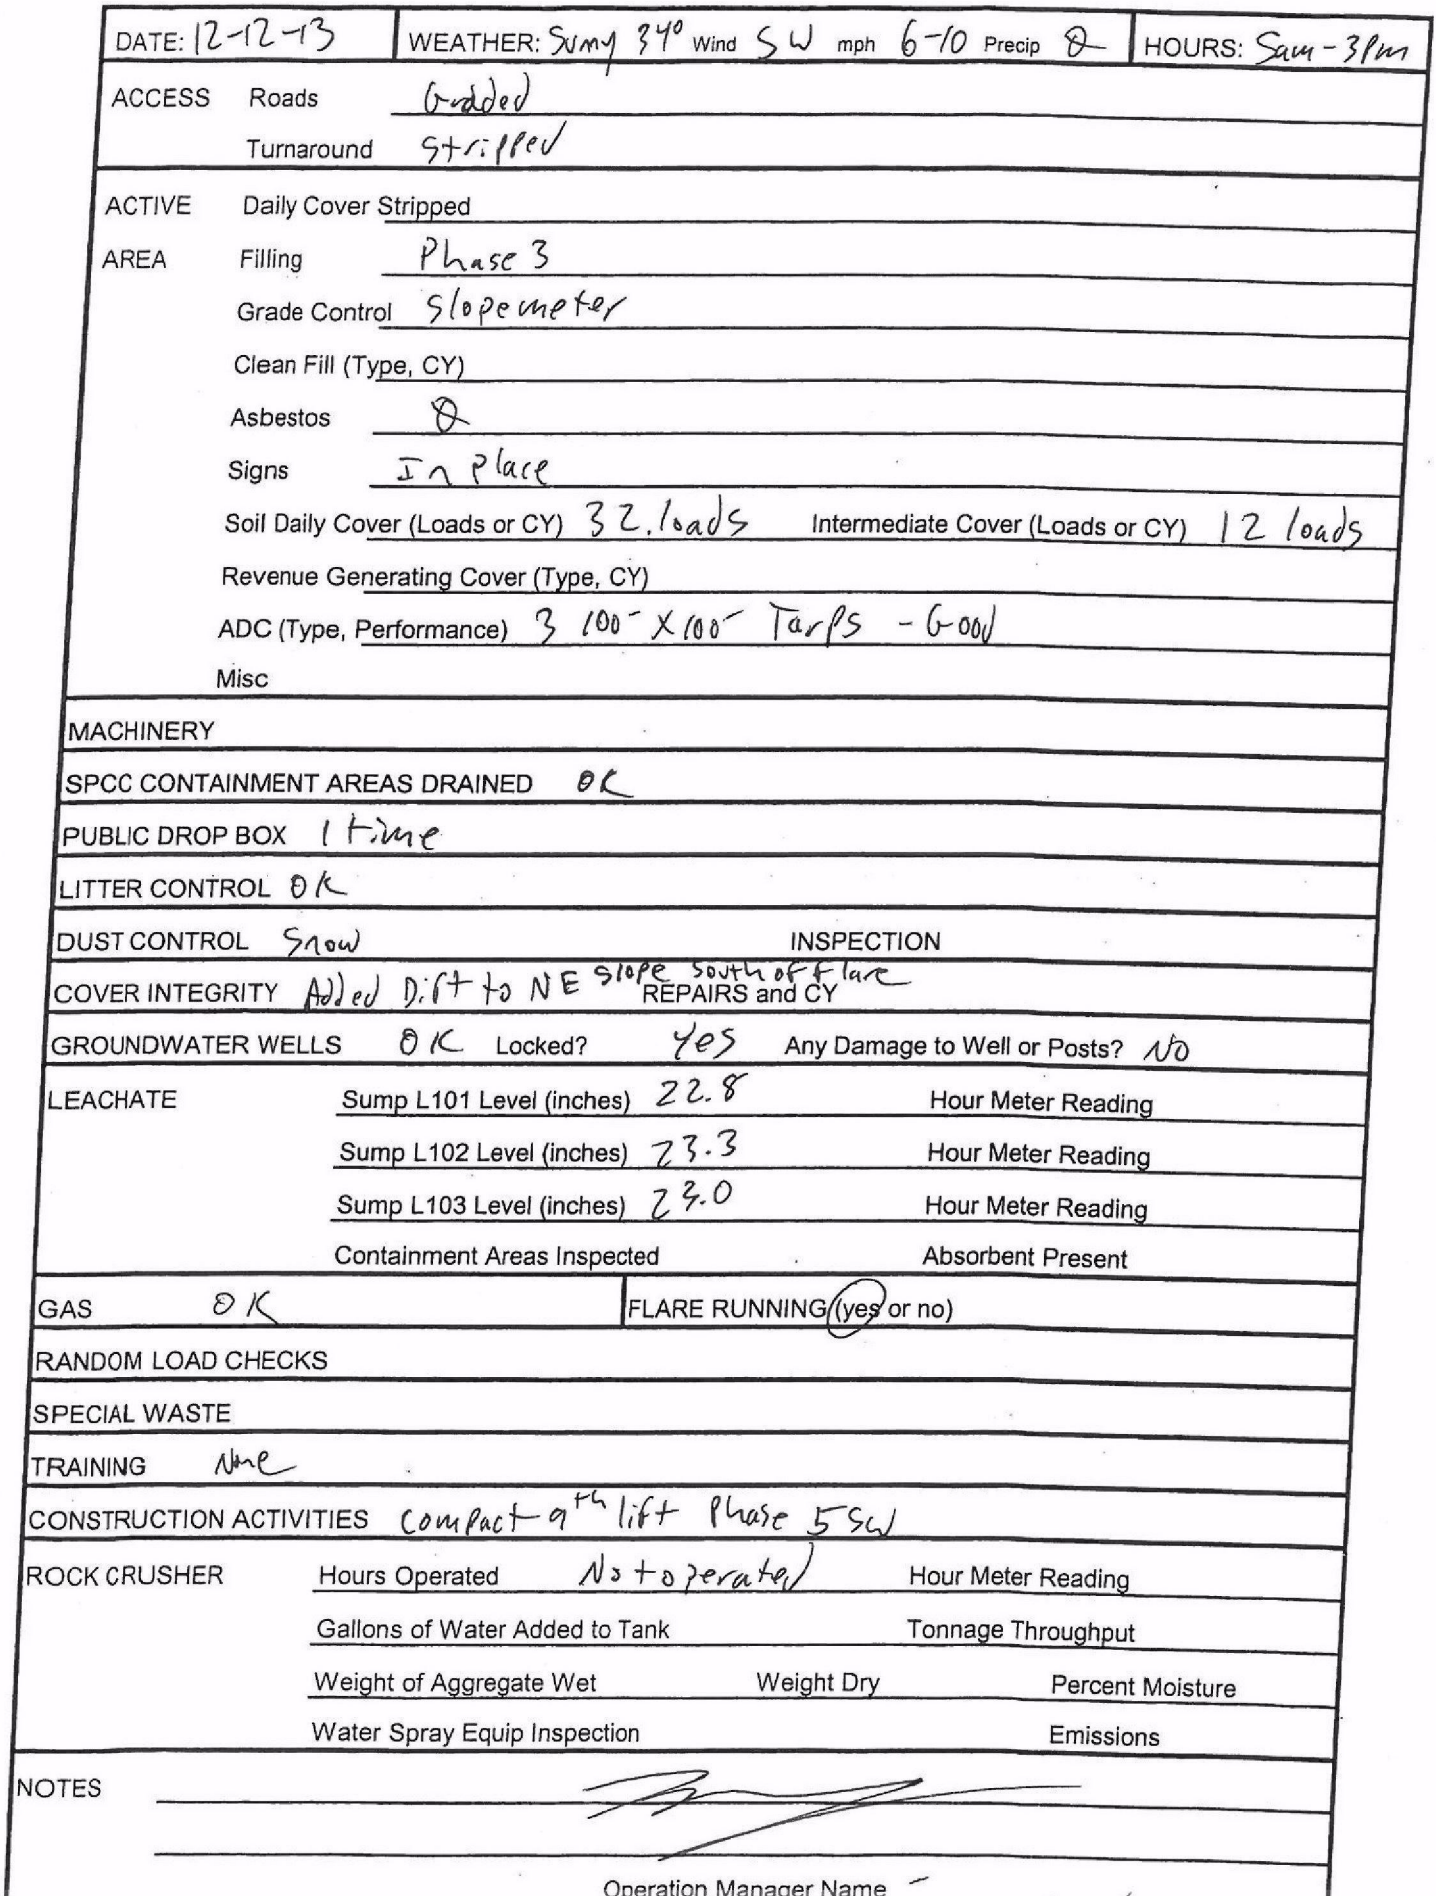 DATE: 12-12-13 WEATHER: Sunny 34° Wind SW mph 6-10 Precip 0 HOURS: 5am-3pm
ACCESS Roads Gradded
Turnaround Stripped
ACTIVE Daily Cover Stripped
AREA Filling Phase 3
Grade Control Slopemeter
Clean Fill (Type, CY)
Asbestos 0
Signs In place
Soil Daily Cover (Loads or CY) 32 loads Intermediate Cover (Loads or CY) 12 loads
Revenue Generating Cover (Type, CY)
ADC (Type, Performance) 3 100- X 100- Tarps - Good
Misc
MACHINERY
SPCC CONTAINMENT AREAS DRAINED OK
PUBLIC DROP BOX 1 time
LITTER CONTROL OK
DUST CONTROL Snow INSPECTION
COVER INTEGRITY Added Dift to NE slope south of flare REPAIRS and CY
GROUNDWATER WELLS OK Locked? Yes Any Damage to Well or Posts? NO
LEACHATE Sump L101 Level (inches) 22.8 Hour Meter Reading
Sump L102 Level (inches) 23.3 Hour Meter Reading
Sump L103 Level (inches) 23.0 Hour Meter Reading
Containment Areas Inspected Absorbent Present
GAS OK FLARE RUNNING (yes or no)
RANDOM LOAD CHECKS
SPECIAL WASTE
TRAINING None
CONSTRUCTION ACTIVITIES Compact 9th lift Phase 5 SW
ROCK CRUSHER Hours Operated Not operated Hour Meter Reading
Gallons of Water Added to Tank Tonnage Throughput
Weight of Aggregate Wet Weight Dry Percent Moisture
Water Spray Equip Inspection Emissions
NOTES
Operation Manager Name